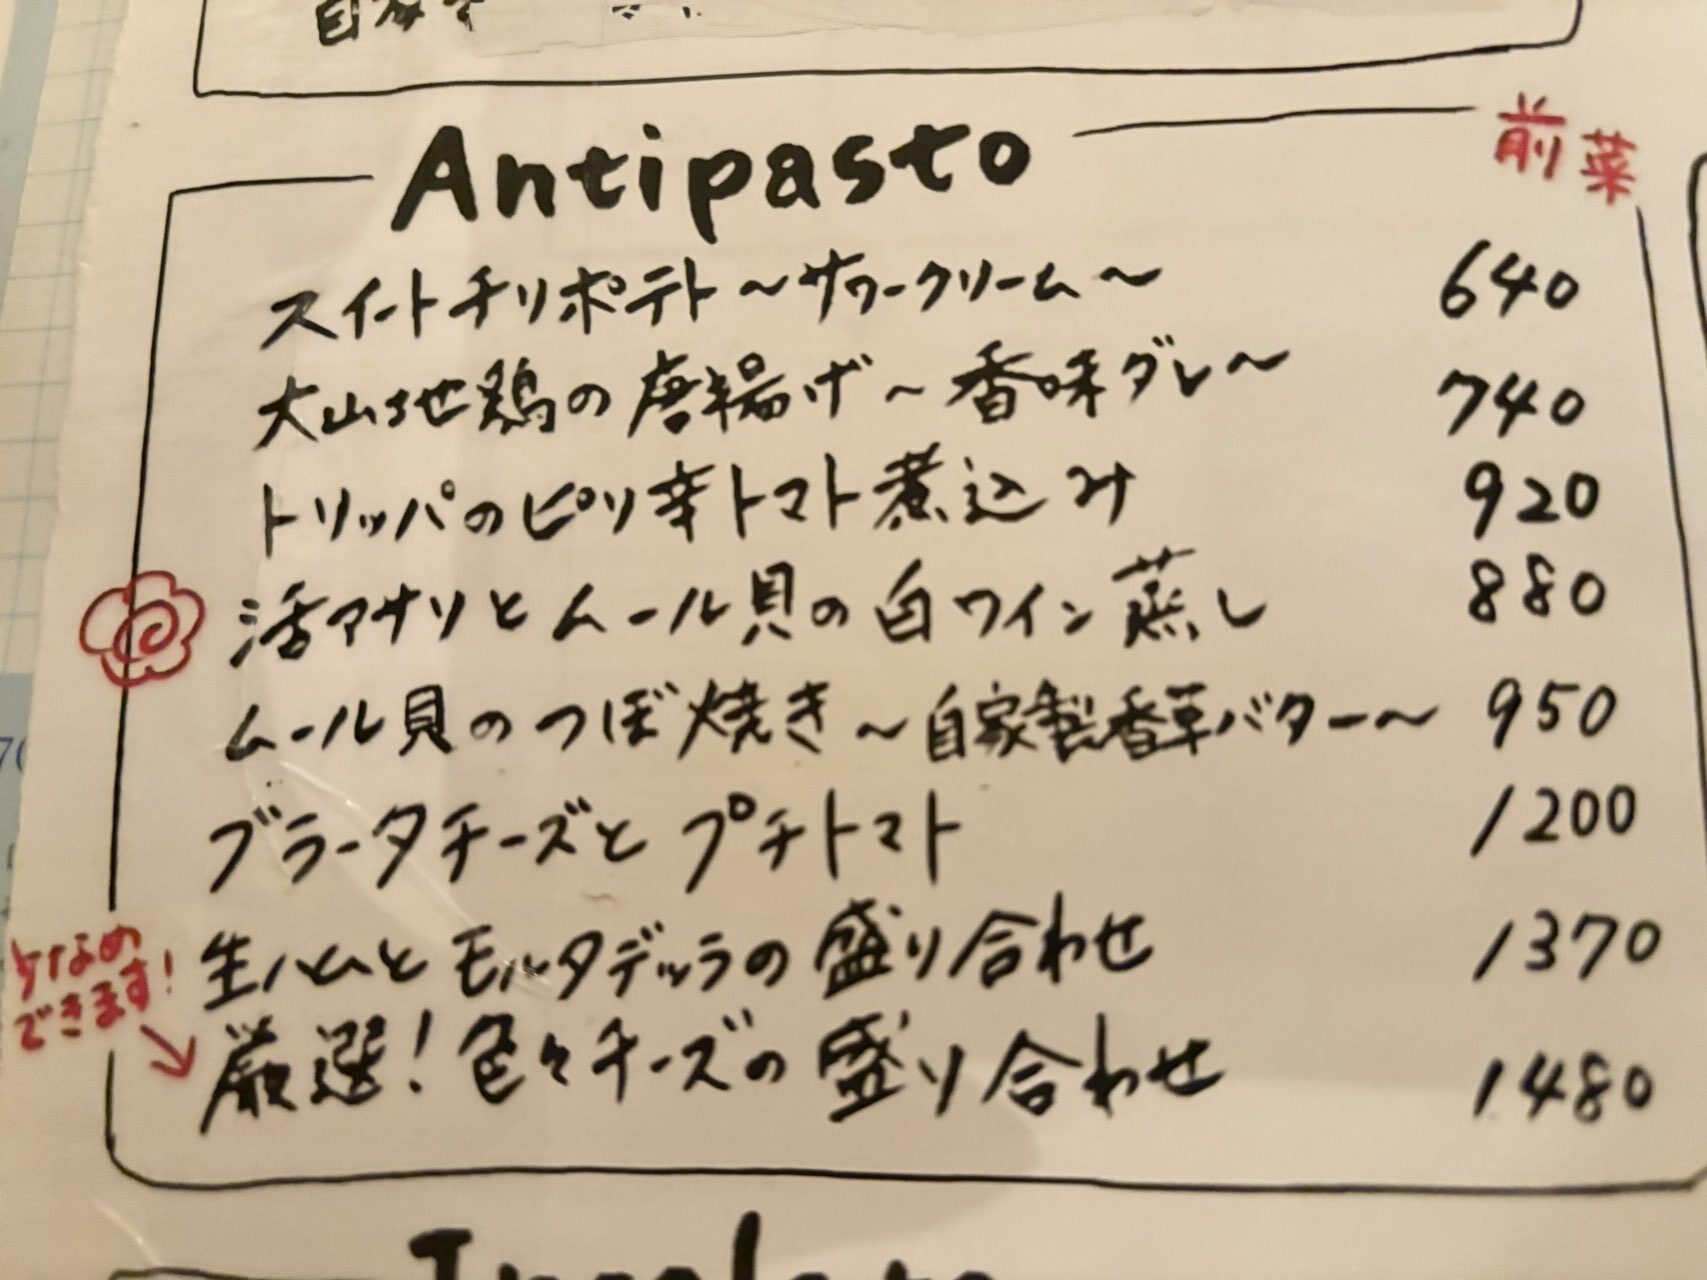 Antipasto
前菜
スイートチリポテト～サワークリーム～ 640
大山地鶏の唐揚げ～香味ダレ～ 740
トリッパのピリ辛トマト煮込み 920
活アサリとムール貝の白ワイン蒸し 880
ムール貝のつぼ焼き～自家製香草バター～ 950
ブラータチーズとプチトマト 1200
生ハムとモルタデッラの盛り合わせ 1370
少なめ
できます！
厳選！色々チーズの盛り合わせ 1480